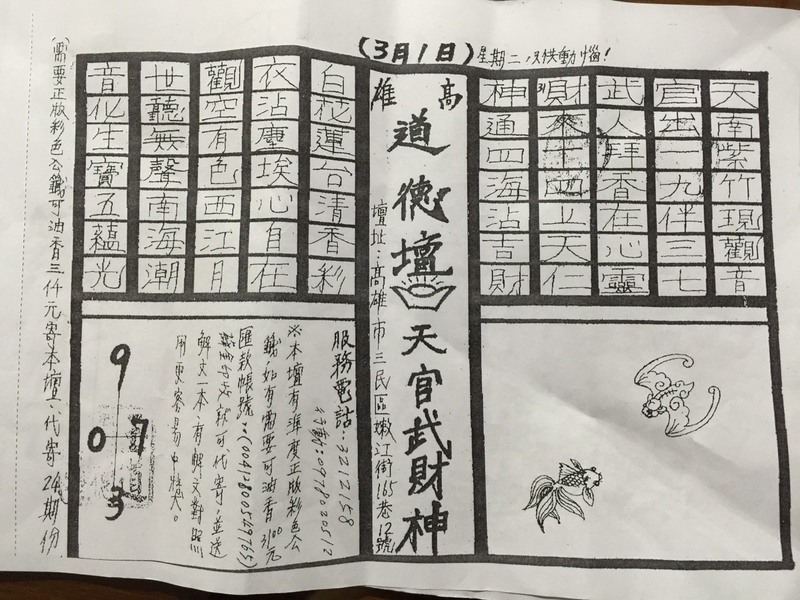 (3月1日)
星期二
天南紫竹現觀音
官出一九伴三七
武人拜香在心靈
財來十四上天仁
神通四海沾吉財
高雄
道德壇
天官武財神
壇址:高雄市三民區嫩江街165巷12號
白花蓮台清香彩
衣沾塵埃心自在
觀空有色西江月
世聽無聲南海潮
音化生寶五蘊光
服務電話:3212158
行動:0978020512
※本壇有準度正版彩色公
籤,如有需要可油香3100元
匯款帳號:(0041280054976
可代寄,並送
解文一本,有解文對照
用更容易中獎。
9
0 7
3
(需要正版彩色公籤可油香三仟元寄本壇、代寄24期份)